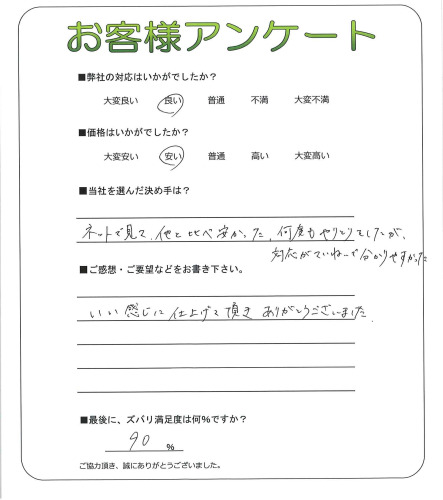 お客様アンケート
■弊社の対応はいかがでしたか?
大変良い 良い 普通 不満 大変不満
■価格はいかがでしたか?
大変安い 安い 普通 高い 大変高い
■当社を選んだ決め手は?
ネットで見て、他と比べ安かった、何度もやりとりをしたが、
対応がていねいで分かりやすかった
■ご感想・ご要望などをお書き下さい。
いい感じに仕上げて頂きありがとうございました
■最後に、ズバリ満足度は何%ですか?
90 %
ご協力頂き、誠にありがとうございました。